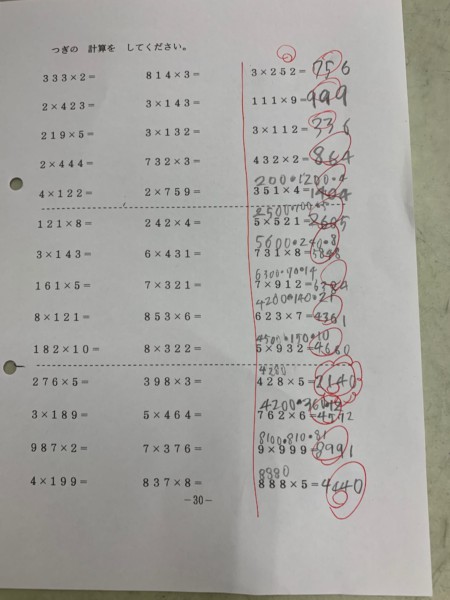 つぎの 計算を してください。
333×2= 814×3= 3×252=756
2×423= 3×143= 111×9=999
219×5= 3×132= 3×112=336
2×444= 732×3= 432×2=864
200・1200・4
4×122= 2×759= 351×4=1404
121×8= 242×4= 5×521=2605
5600・240・8
3×143= 6×431= 731×8=5848
6300・90・14
161×5= 7×321= 7×912=6384
4200・140・21
8×121= 853×6= 623×7=4361
4500・150・10
182×10= 8×322= 5×932=4660
4280
276×5= 398×3= 428×5=2140
4200・360・12
3×189= 5×464= 762×6=4572
8100・810・81
987×2= 7×376= 9×999=8991
8880
4×199= 837×8= 888×5=4440
-30-